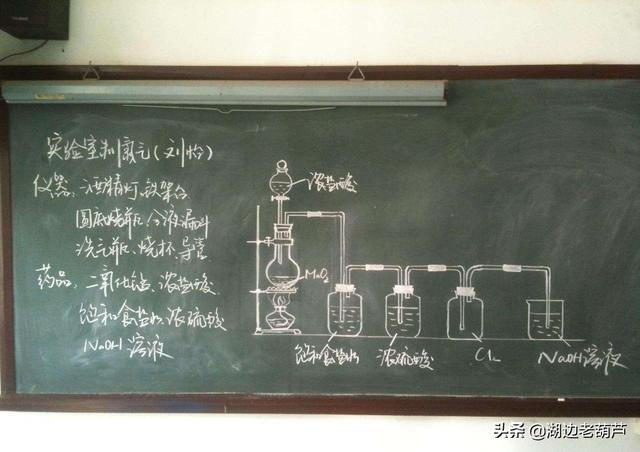 实验室制氯气(刘怡)
仪器:酒精灯、铁架台
圆底烧瓶、分液漏斗
洗气瓶、烧杯、导管
药品:二氧化锰、浓盐酸
饱和食盐水、浓硫酸
NaOH溶液
浓盐酸
MnO₂
饱和食盐水
浓硫酸
Cl₂
NaOH溶液
头条 @湖边老葫芦